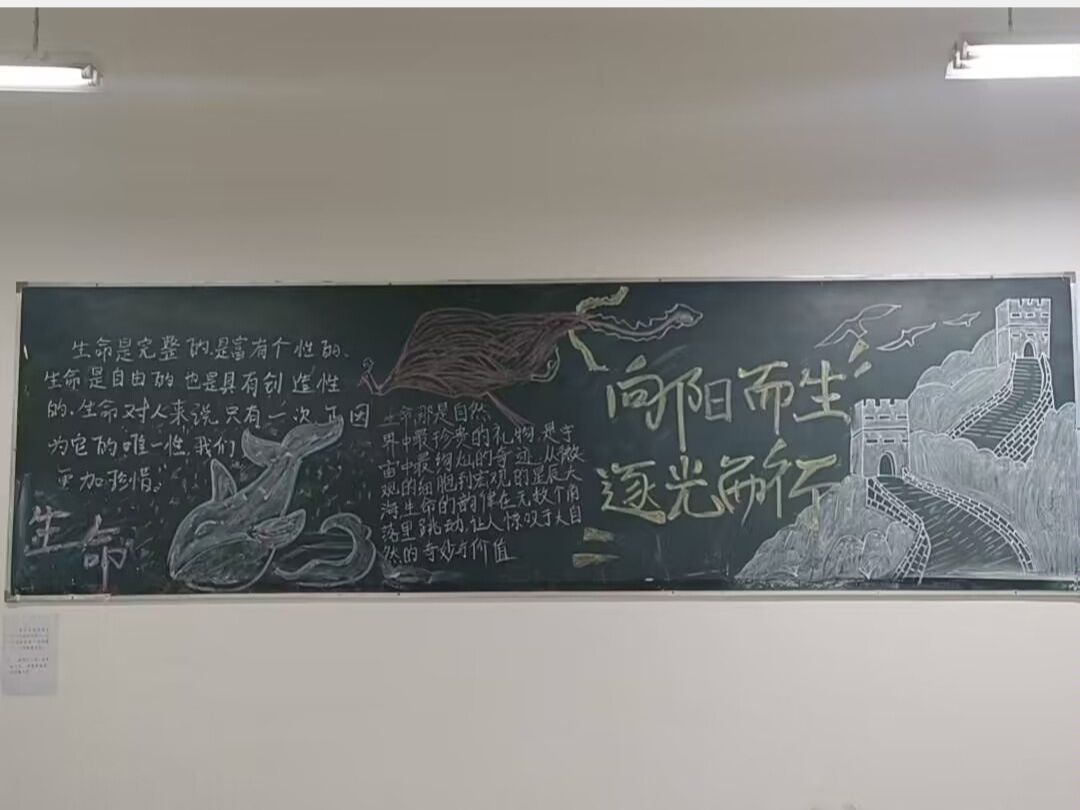 生命是完整的,是富有个性的、
生命是自由的 也是具有创造性
的.生命对人来说,只有一次 正因
为它的唯一性,我们
更加珍惜.
生命
生命那是自然
界中最珍贵的礼物.是宇
宙中最绚灿的奇迹.从微
观的细胞到宏观的星辰大
海生命的韵律在无数个角
落里跳动,让人惊叹于大自
然的奇妙与价值
向阳而生
逐光而行